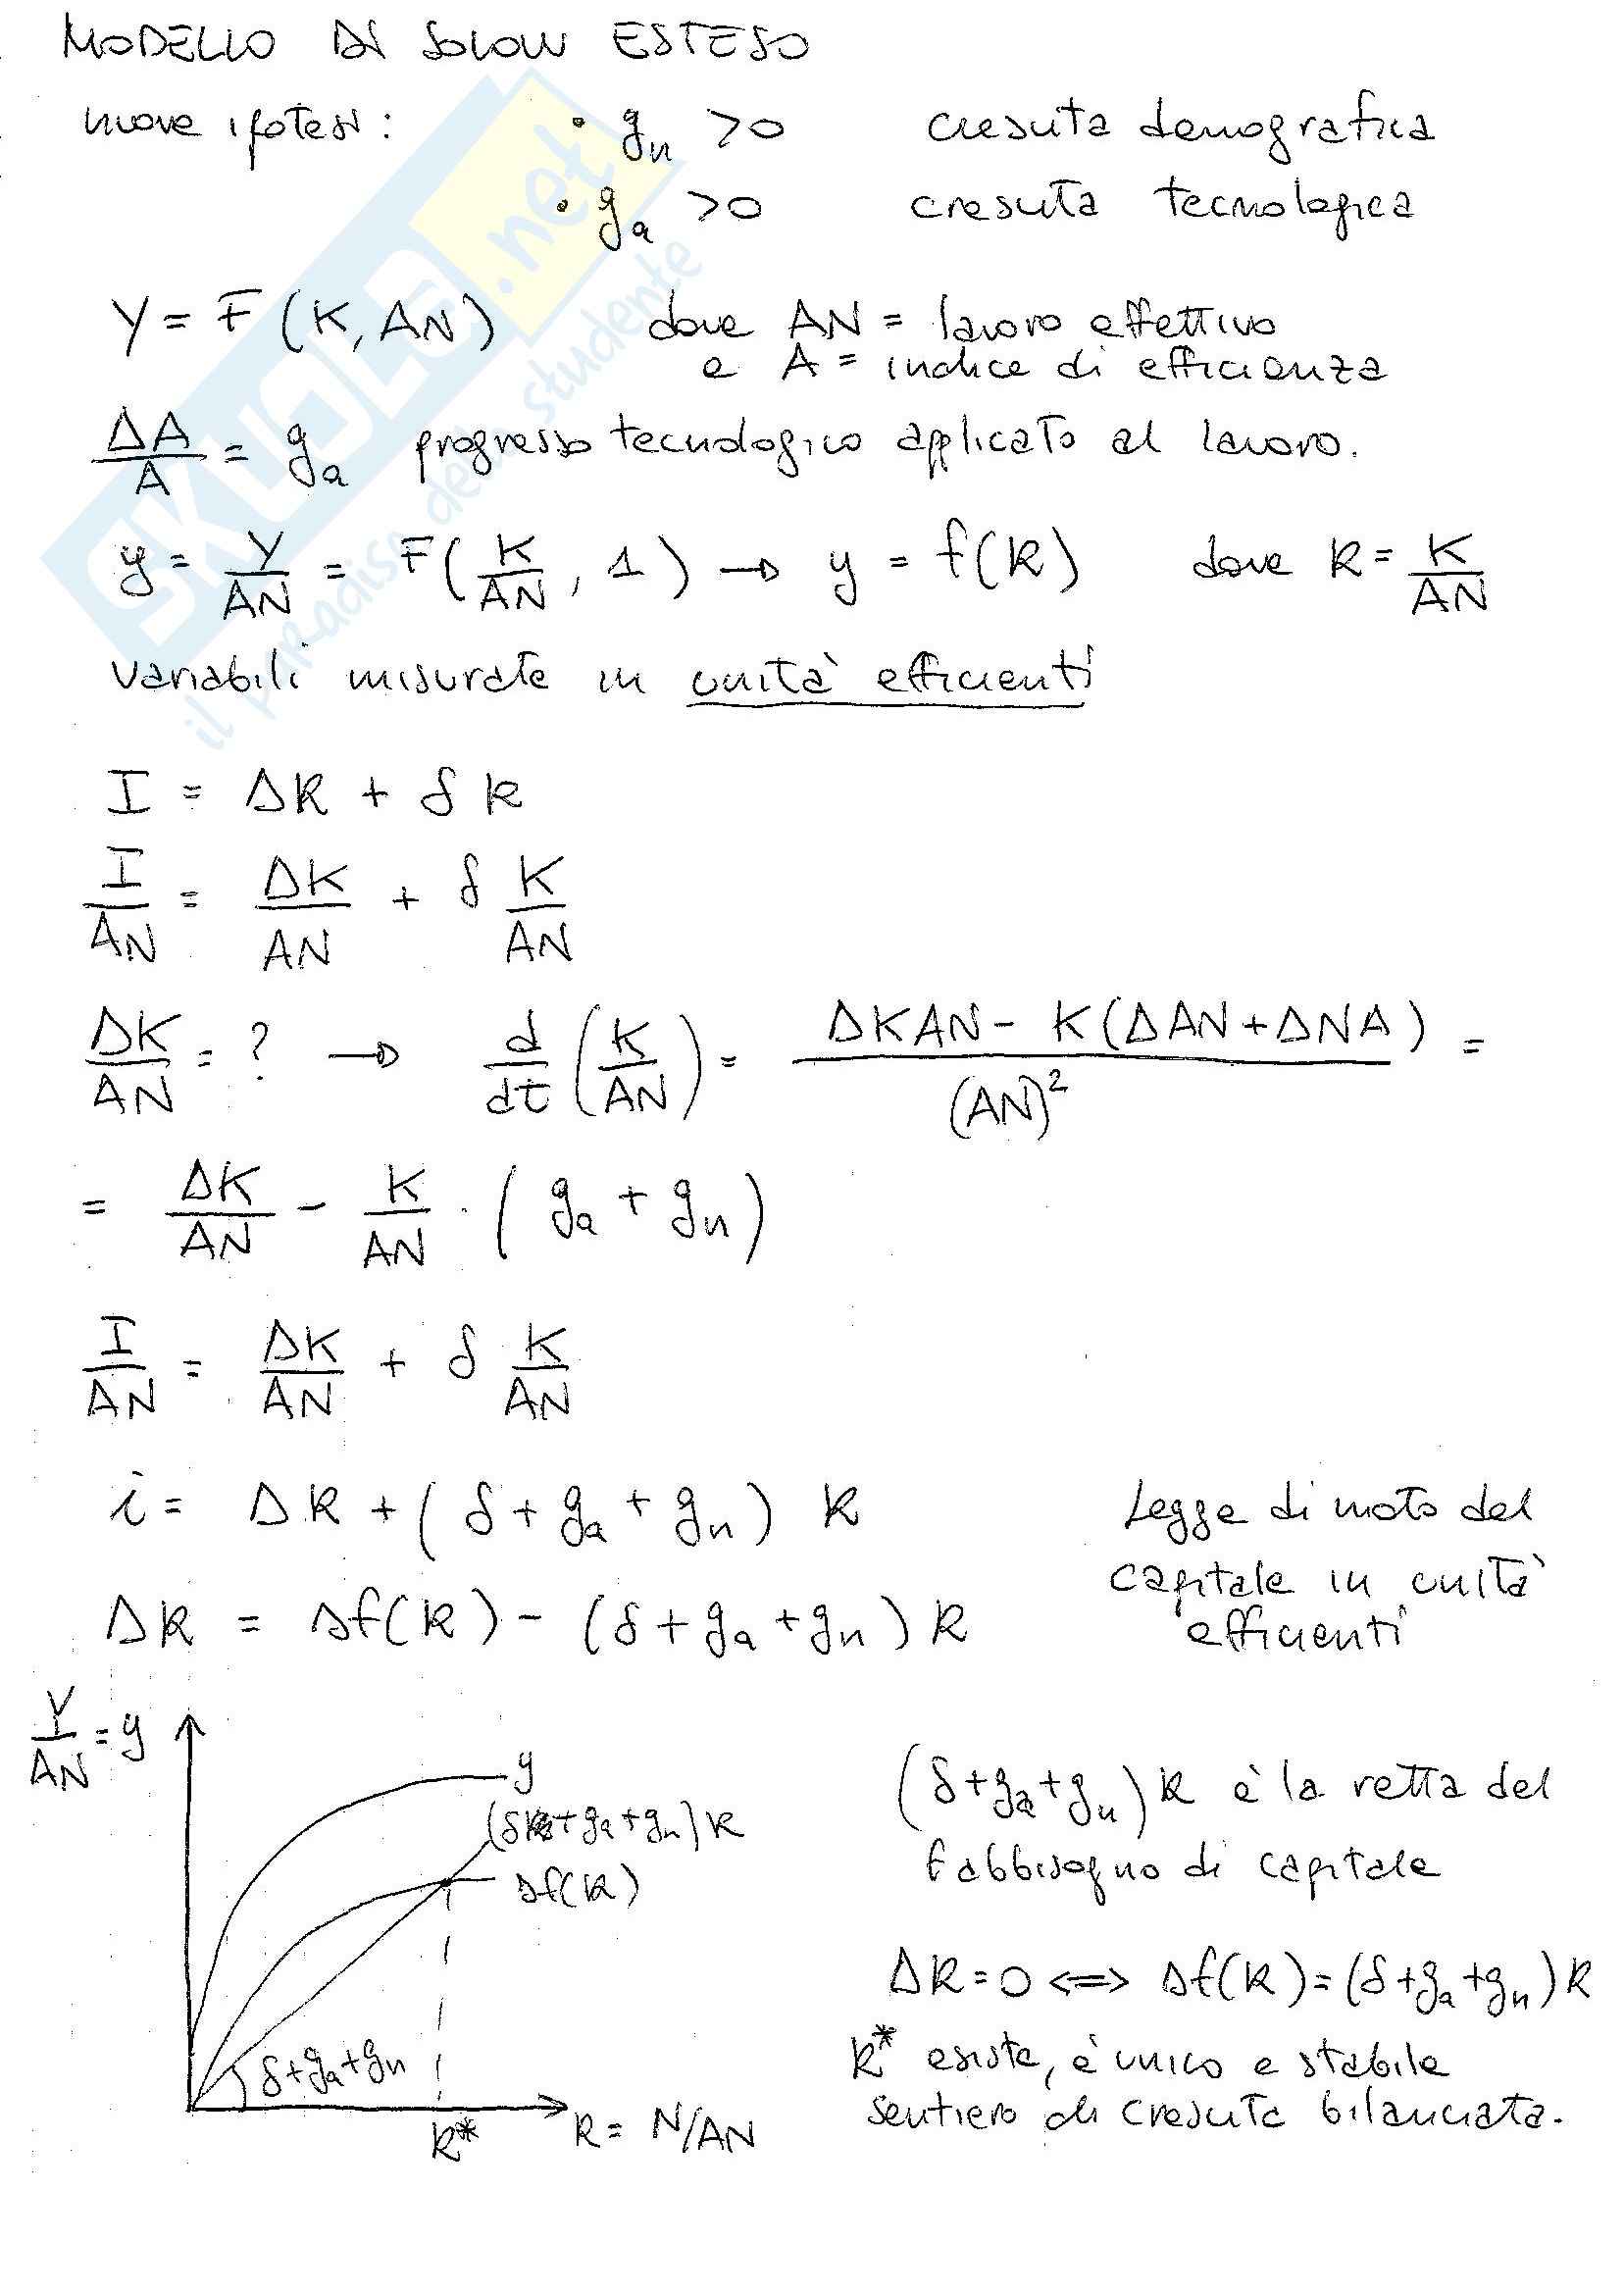 MODELLO DI SOLOW ESTESO
nuove ipotesi: • gn >0 crescita demografica
• ga >0 crescita tecnologica
Y = F (K, AN) dove AN = lavoro effettivo
e A = indice di efficienza
ΔA/A = ga progresso tecnologico applicato al lavoro.
y = Y/AN = F(K/AN, 1) → y = f(k) dove k = K/AN
variabili misurate in unità efficienti
I = ΔK + δ k
I/AN = ΔK/AN + δ K/AN
ΔK/AN = ? → d/dt (K/AN) = ΔKAN - K(ΔAN+ΔNA) / (AN)² =
= ΔK/AN - K/AN · (ga + gn)
I/AN = ΔK/AN + δ K/AN
i = Δk + (δ + ga + gn) k Legge di moto del
capitale in unità
efficienti
Δk = sf(k) - (δ + ga + gn) k
Y/AN = y
y
(δ+ga+gn)k
sf(k)
δ+ga+gn
k*
k = N/AN
(δ+ga+gn)k è la retta del
fabbisogno di capitale
Δk=0 <=> sf(k)=(δ+ga+gn)k
k* esiste, è unico e stabile
sentiero di crescita bilanciata.
SKUOLA.net
il paradiso dello studente